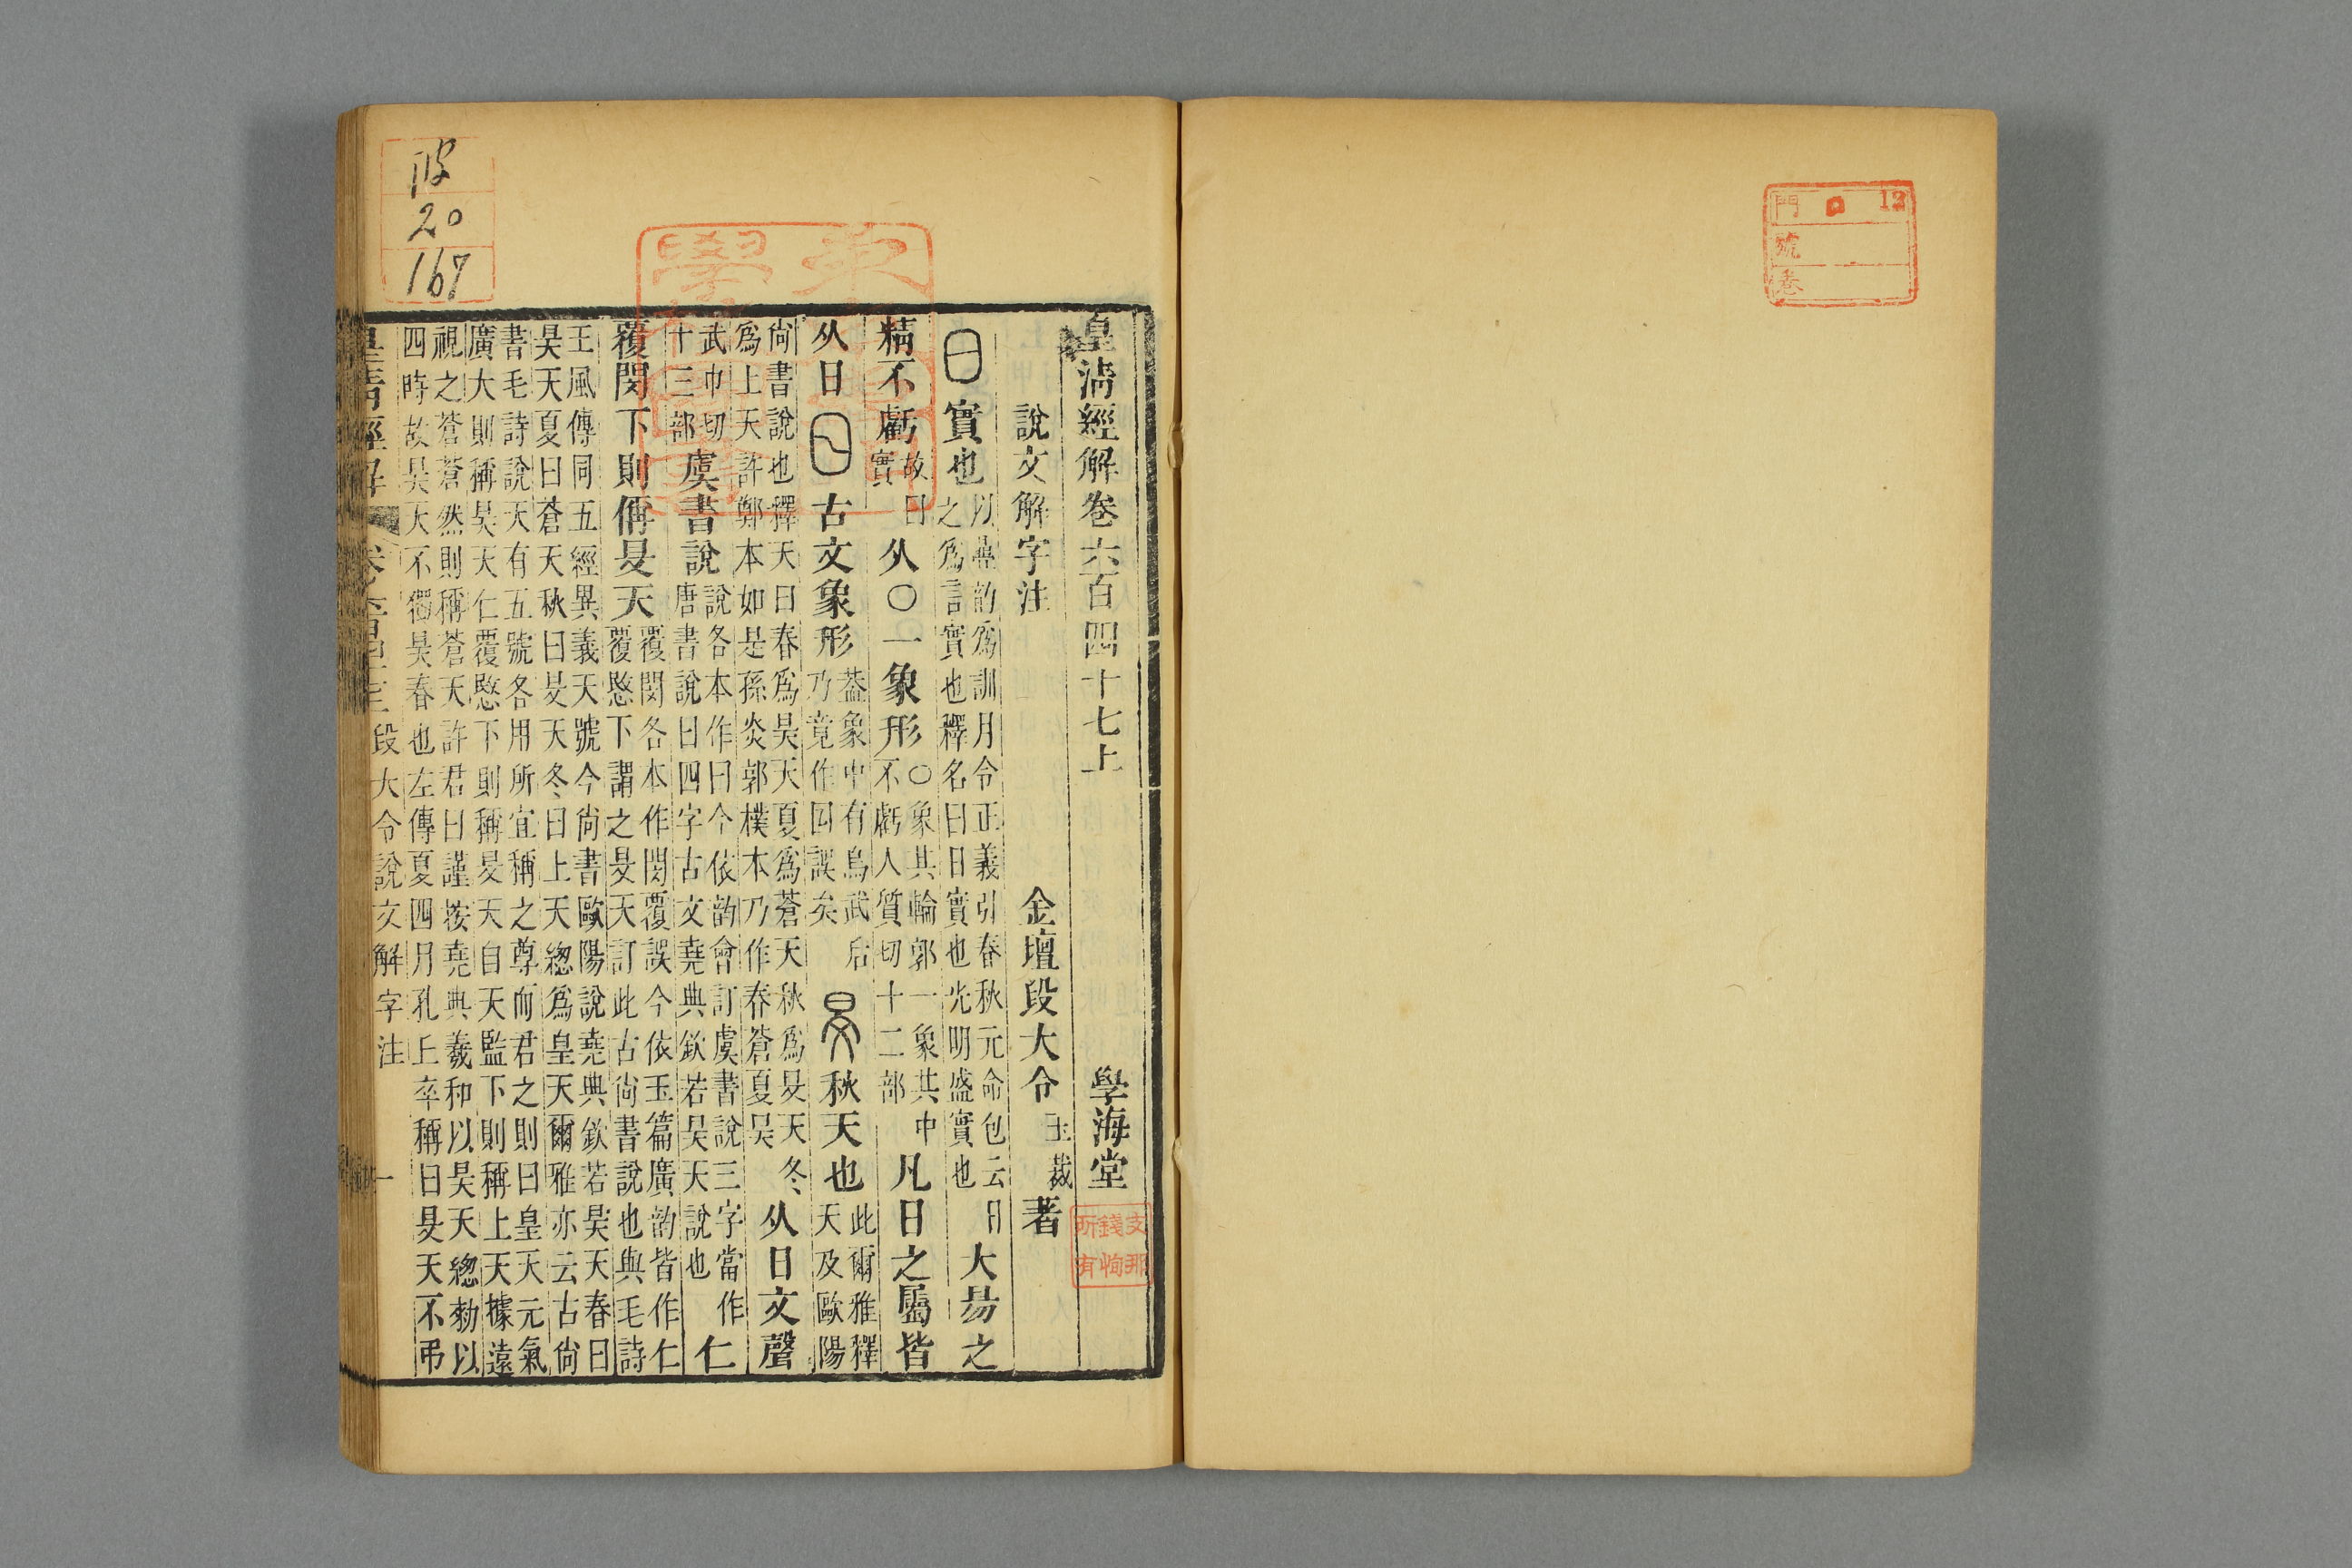 門 12
號
卷
皇清經解卷六百四十七上 學海堂
支那
錢恂
所有
說文解字注 金壇段大令玉裁著
日 實也 以疊韵爲訓月令正義引春秋元命包云日之爲言實也釋名曰日實也光明盛實也 大昜之
精不虧 故曰實 从○一象形 ○象其輪郭一象其中不虧人質切十二部 凡日之屬皆
从日 古文象形 葢象中有烏武后乃竟作誤矣 旻 秋天也 此爾雅釋天及歐陽
尙書說也釋天曰春爲昊天夏爲蒼天秋爲旻天冬爲上天許鄭本如是孫炎郭樸本乃作春蒼夏昊 从日文聲
武巾切十三部 虞書說 說各本作曰今依韵會訂虞書說三字當作唐書說曰四字古文堯典欽若昊天說也 仁
覆閔下則偁旻天 覆閔各本作閔覆誤今依玉篇廣韵皆作仁覆愍下謂之旻天訂此古尙書說也與毛詩
王風傳同五經異義天號今尙書歐陽說堯典欽若昊天春曰
昊天夏曰蒼天秋曰旻天冬曰上天緫爲皇天爾雅亦云古尙
書毛詩說天有五號各用所宜稱之尊而君之則曰皇天元氣
廣大則稱昊天仁覆愍下則稱旻天自天監下則稱上天據遠
視之蒼蒼然則稱蒼天許君曰謹按堯典羲和以昊天緫勑以
四時故昊天不獨昊春也左傳夏四月孔丘卒稱曰旻天不弔
皇清經解 段大令說文解字注 一
20
167